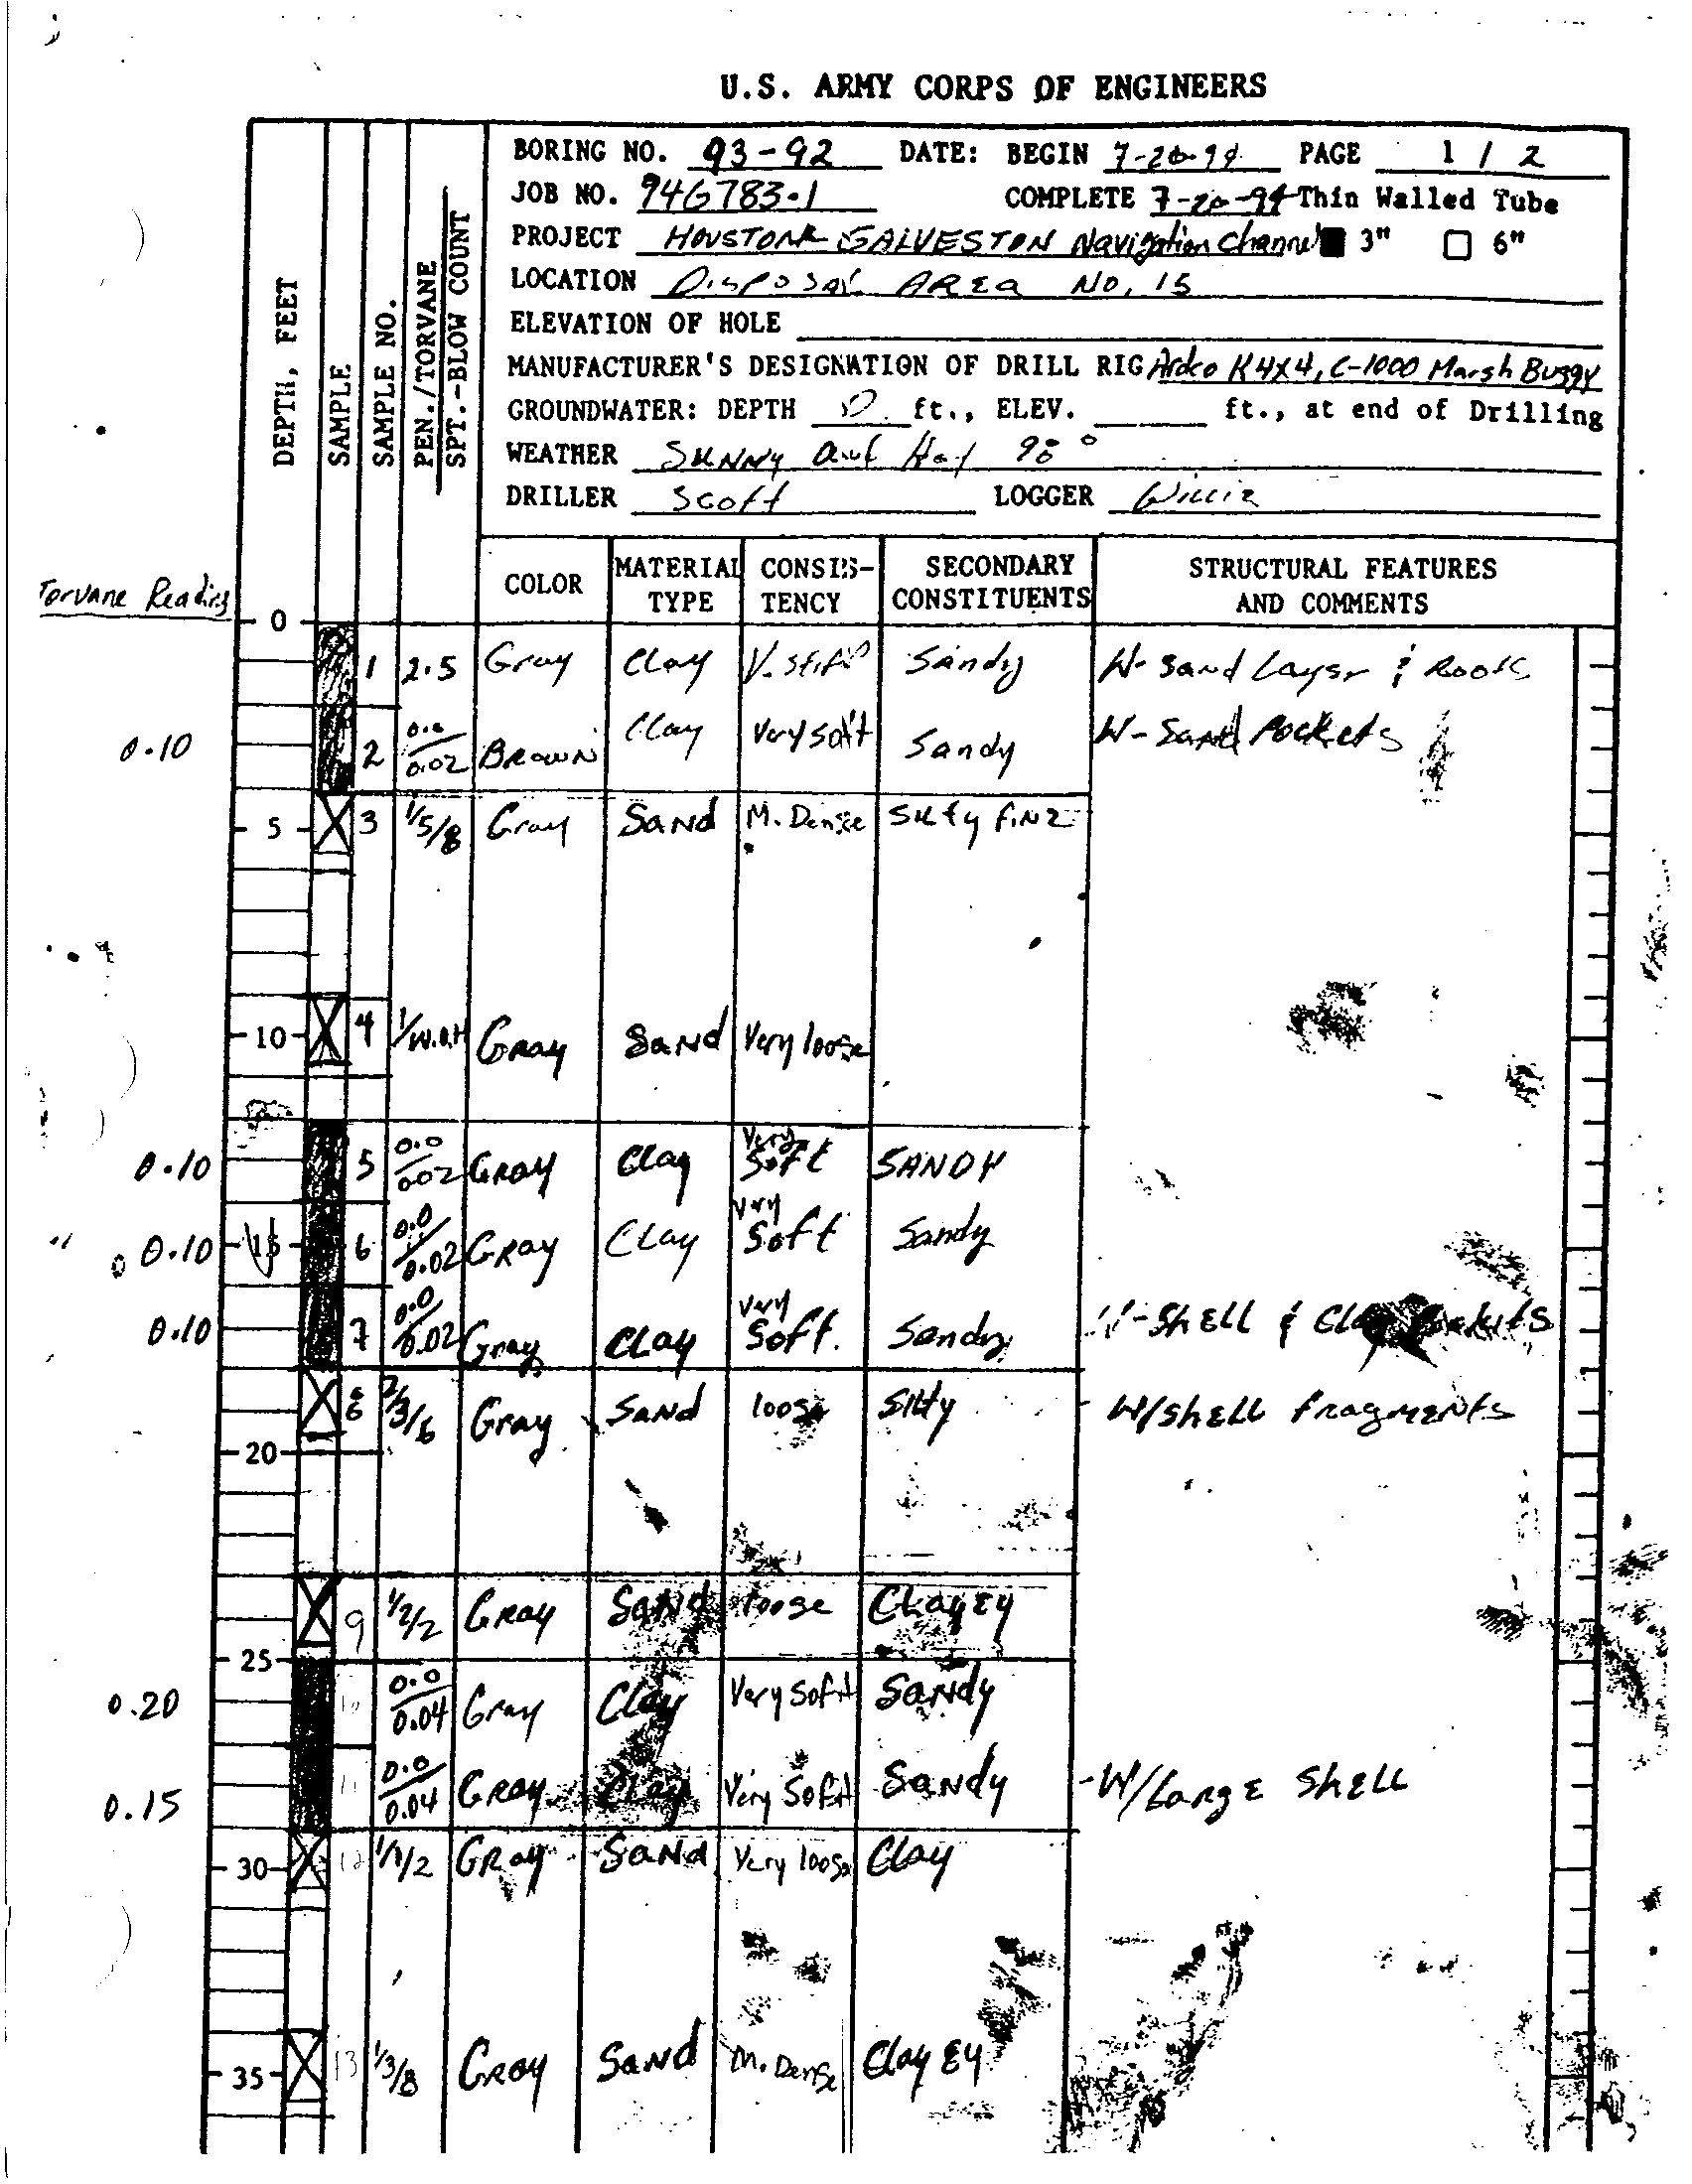 U.S. ARMY CORPS OF ENGINEERS
BORING NO. 93-92 DATE: BEGIN 7-20-94 PAGE 1 / 2
JOB NO. 94G783-1 COMPLETE 7-20-94 Thin Walled Tube
PROJECT HOUSTON GALVESTON Navigation Channel ■ 3" □ 6"
LOCATION Disposal AREA NO. 15
ELEVATION OF HOLE
MANUFACTURER'S DESIGNATION OF DRILL RIG Ardco K4x4, C-1000 Marsh Buggy
GROUNDWATER: DEPTH 0 ft., ELEV. ft., at end of Drilling
WEATHER SUNNY and Hot 98°
DRILLER Scott LOGGER Willie
DEPTH, FEET
SAMPLE
SAMPLE NO.
PEN./TORVANE
SPT.-BLOW COUNT
COLOR MATERIAL TYPE CONSIS-TENCY SECONDARY CONSTITUENTS STRUCTURAL FEATURES AND COMMENTS
Torvane Reading
0
1 2.5 Gray Clay V. Stiff Sandy W- Sand Layer & Roots
0.10 2 0.0/0.02 BROWN Clay Very Soft Sandy W- Sand Pockets
5 3 1/5/8 Gray SAND M. Dense Silty fine
10 4 1/W.O.H Gray SAND Very loose
0.10 5 0.0/0.02 GRAY Clay Very Soft SANDY
0.10 15 6 0.0/0.02 GRAY Clay Very Soft Sandy
0.10 7 0.0/0.02 Gray Clay Very Soft. Sandy W-Shell & Clay Pockets
8 2/3/6 Gray SAND loose Silty W/shell fragments
20
9 1/2/2 GRAY SAND loose Clayey
25
0.20 10 0.0/0.04 Gray Clay Very Soft Sandy
0.15 11 0.0/0.04 GRAY Clay Very Soft Sandy -W/Large Shell
30 12 1/1/2 GRAY SAND Very loose Clay
35 13 1/3/8 GRAY SAND M. Dense Clayey